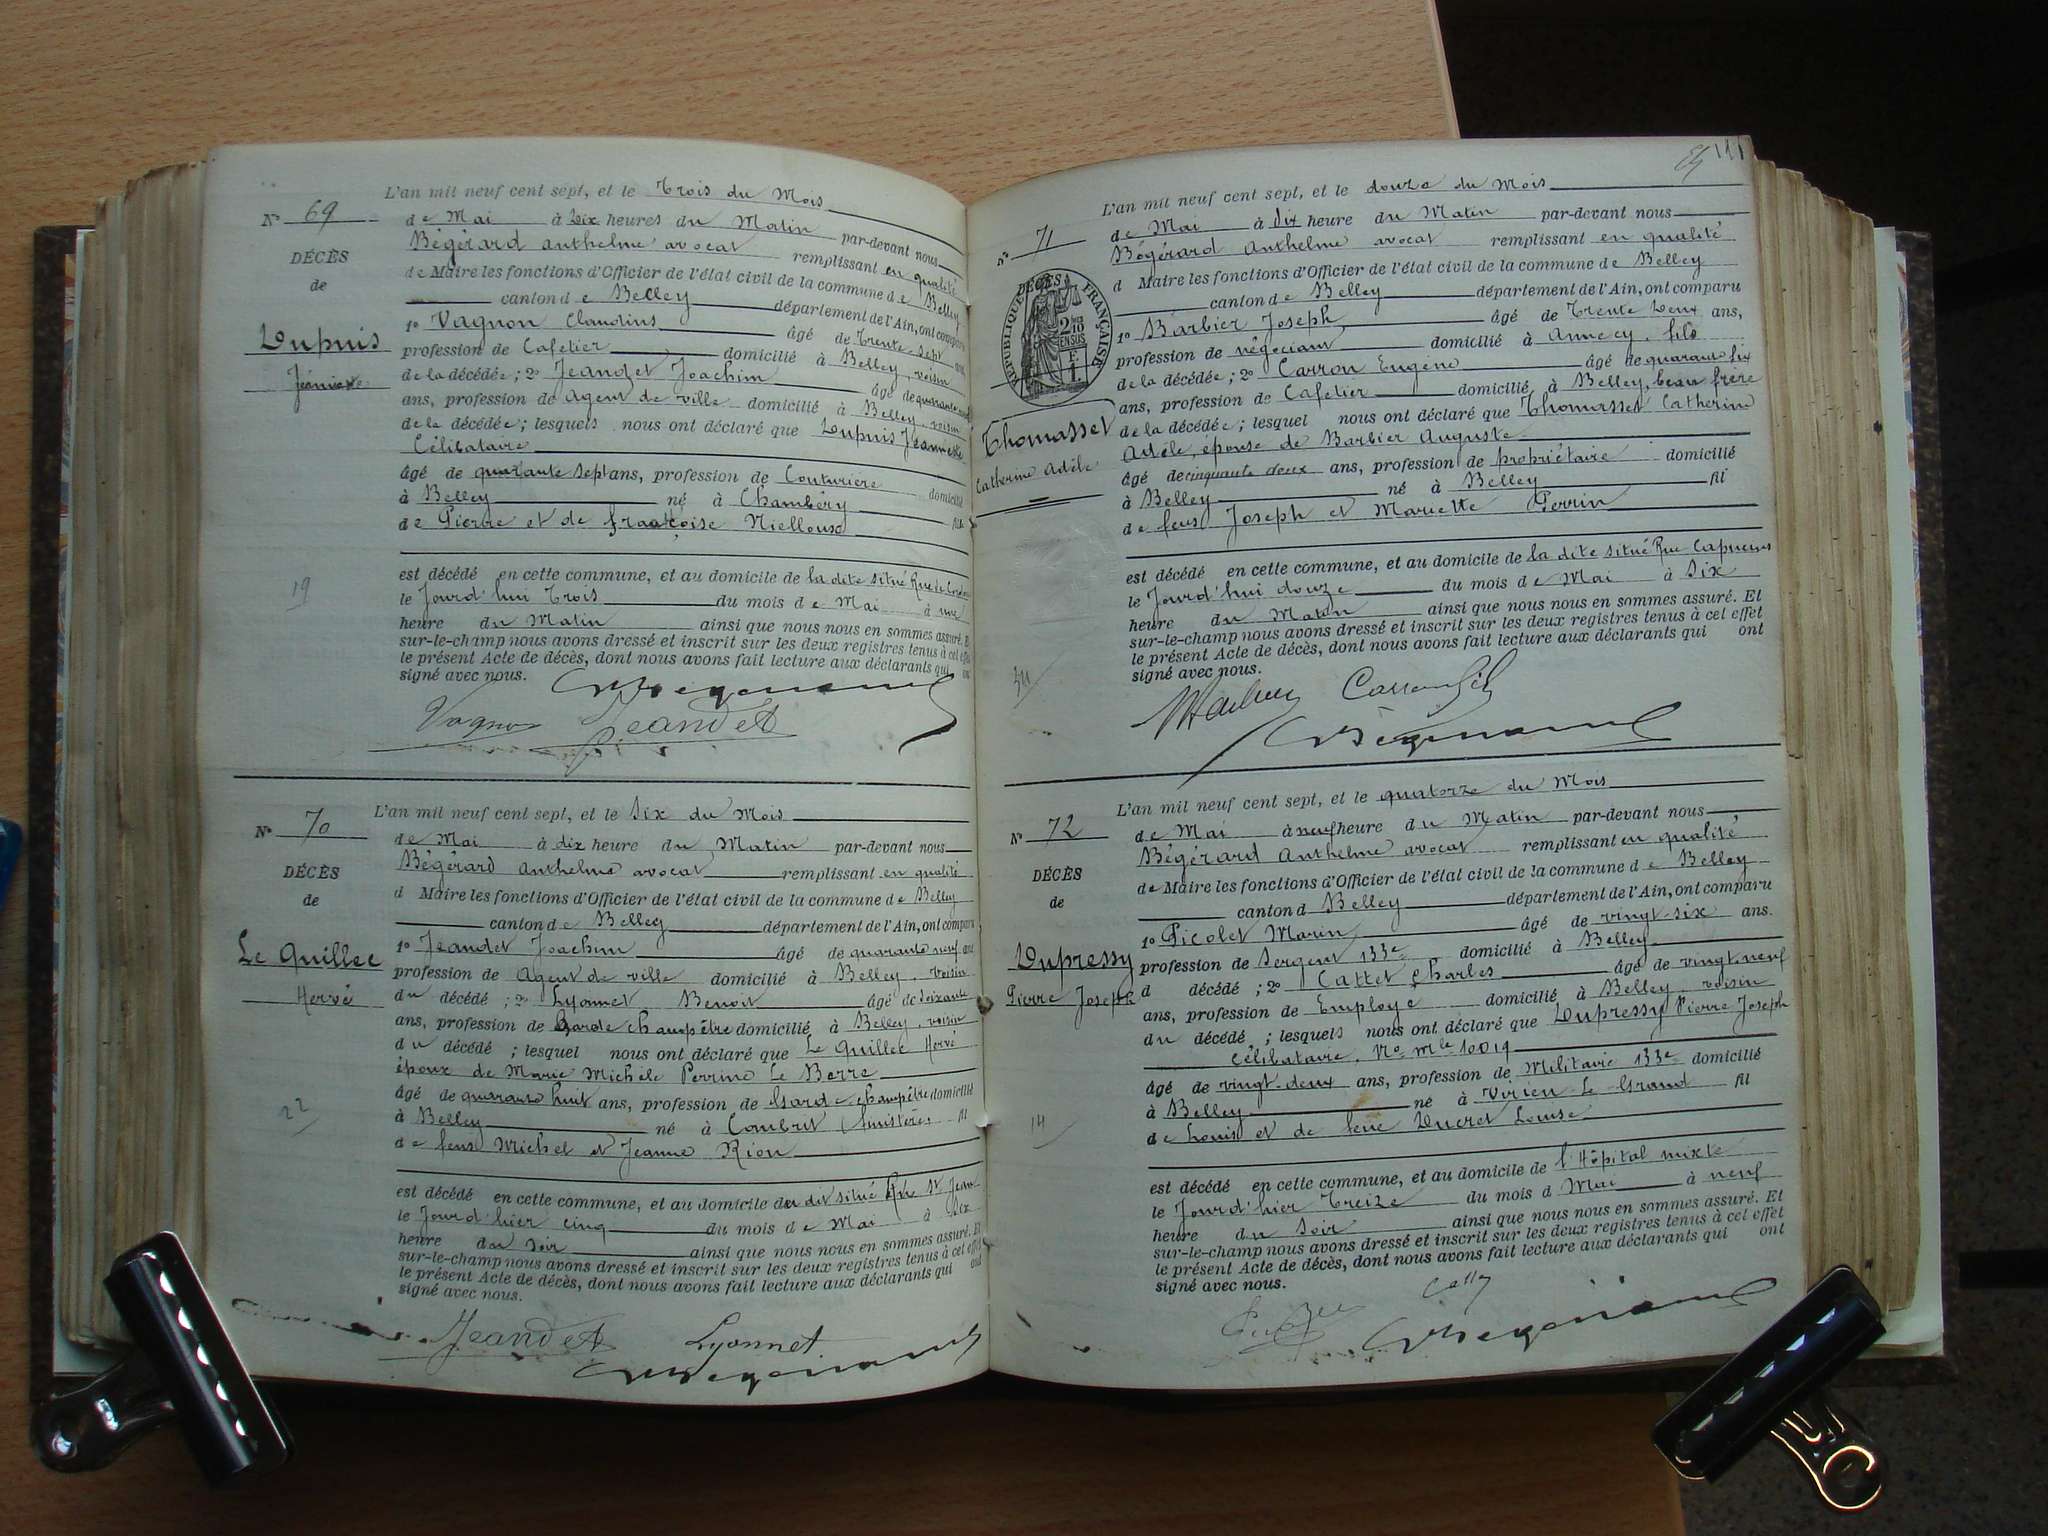 L'an mil neuf cent sept, et le Trois du Mois
N° 69
de Mai à Dix heures du Matin par-devant nous
Bégérard anthelme avocat remplissant en qualité
DÉCÈS
de Maire les fonctions d'Officier de l'état civil de la commune de Belley
de
canton de Belley département de l'Ain, ont comparu
Dupuis
Jeannette
1° Vagnon Claudius âgé de Trente sept ans
profession de Cafetier domicilié à Belley, voisin
de la décédée; 2° Jeandet Joachim âgé de quarante neuf
ans, profession de Agent de ville domicilié à Belley, voisin
de la décédée; lesquels nous ont déclaré que Dupuis Jeannette
Célibataire
âgé de quarante sept ans, profession de Couturière domicilié
à Belley né à Chambéry fille
de Pierre et de françoise Nielloux
est décédé en cette commune, et au domicile de la dite situé Rue de
19
le Jourd'hui Trois du mois de Mai à une
heure du Matin ainsi que nous nous en sommes assuré. Et
sur-le-champ nous avons dressé et inscrit sur les deux registres tenus à cet effet
le présent Acte de décès, dont nous avons fait lecture aux déclarants qui ont
signé avec nous.
Vagnon Jeandet
L'an mil neuf cent sept, et le Six du Mois
N° 70
de Mai à dix heure du Matin par-devant nous
Bégérard Anthelme avocat remplissant en qualité
DÉCÈS
d Maire les fonctions d'Officier de l'état civil de la commune de Belley
de
canton de Belley département de l'Ain, ont comparu
Le Quillec
Hervé
1° Jeandet Joachim âgé de quarante neuf ans
profession de Agent de ville domicilié à Belley, voisin
du décédé; 2° Lyonnet Benoit âgé de soixante
ans, profession de Garde champêtre domicilié à Belley, voisin
du décédé; lesquel nous ont déclaré que Le Quillec Hervé
époux de Marie Michèle Perrine Le Berre
âgé de quarante huit ans, profession de Garde champêtre domicilié
22
à Belley né à Combrit (finistère) fil
de feus Michel et Jeanne Riou
est décédé en cette commune, et au domicile du dit situé Rue St Jean
le Jourd'hier cinq du mois de Mai à Six
heure du soir ainsi que nous nous en sommes assuré. Et
sur-le-champ nous avons dressé et inscrit sur les deux registres tenus à cet effet
le présent Acte de décès, dont nous avons fait lecture aux déclarants qui ont
signé avec nous.
Jeandet Lyonnet
111
L'an mil neuf cent sept, et le douze du Mois
N° 71
de Mai à Dix heure du Matin par-devant nous
Bégérard Anthelme avocat remplissant en qualité
d Maire les fonctions d'Officier de l'état civil de la commune de Belley
canton de Belley département de l'Ain, ont comparu
RÉPUBLIQUE FRANÇAISE
DÉCÈS
2/10 EN SUS
F. 1
1° Barbier Joseph âgé de Trente Deux ans,
profession de négociant domicilié à Annecy, fils
de la décédée; 2° Carron Eugène âgé de quarante six
ans, profession de Cafetier domicilié à Belley, beau frère
Thomasset
Catherine Adèle
de la décédée; lesquel nous ont déclaré que Thomasset Catherine
Adèle, épouse de Barbier Auguste
âgé de cinquante deux ans, profession de propriétaire domicilié
à Belley né à Belley fil
de feus Joseph et Mariette Perrin
est décédé en cette commune, et au domicile de la dite situé Rue Capucins
le Jourd'hui douze du mois de Mai à Six
heure du Matin ainsi que nous nous en sommes assuré. Et
sur-le-champ nous avons dressé et inscrit sur les deux registres tenus à cet effet
le présent Acte de décès, dont nous avons fait lecture aux déclarants qui ont
signé avec nous.
L'an mil neuf cent sept, et le quatorze du Mois
N° 72
de Mai à neuf heure du Matin par-devant nous
Bégérard Anthelme avocat remplissant en qualité
DÉCÈS
de Maire les fonctions d'Officier de l'état civil de la commune de Belley
de
canton d Belley département de l'Ain, ont comparu
Dupressy
Pierre Joseph
1° Picolet Marin âgé de vingt-six ans.
profession de Sergent 133e domicilié à Belley
d décédé; 2° Cattet Charles âgé de vingt-neuf
ans, profession de Employé domicilié à Belley, voisin
du décédé; lesquels nous ont déclaré que Dupressy Pierre Joseph
Célibataire, No Mle 10019
âgé de vingt-deux ans, profession de Militaire 133e domicilié
à Belley né à Virieu-Le-Grand fil
14
de Louis et de feue Ducret Louise
est décédé en cette commune, et au domicile de l'Hôpital mixte
le Jourd'hier Treize du mois d Mai à neuf
heure du soir ainsi que nous nous en sommes assuré. Et
sur-le-champ nous avons dressé et inscrit sur les deux registres tenus à cet effet
le présent Acte de décès, dont nous avons fait lecture aux déclarants qui ont
signé avec nous.